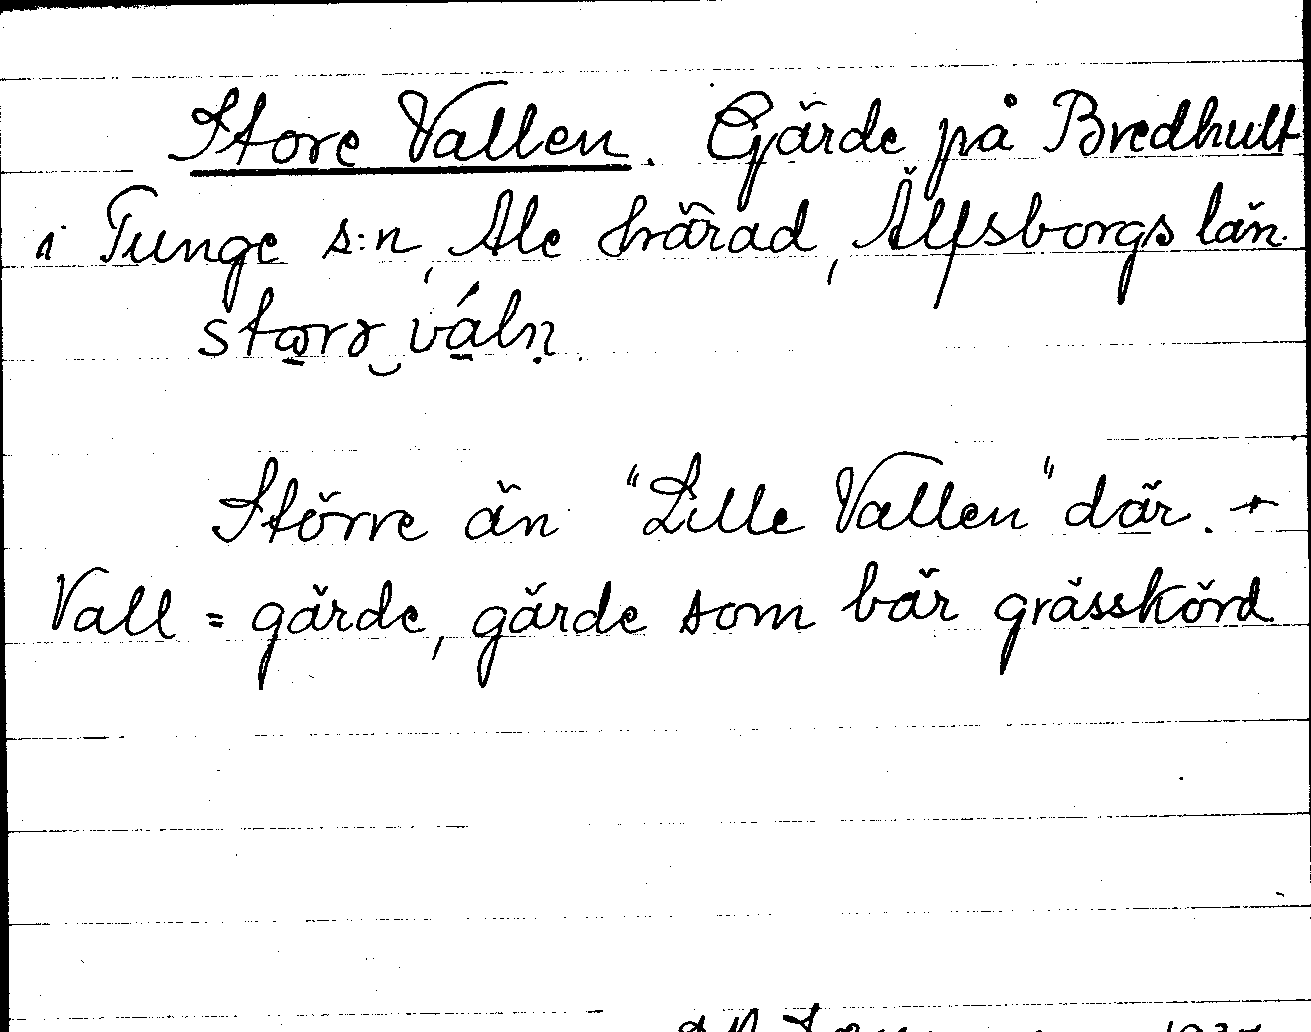 Store Vallen. Gärde på Bredhult
i Tunge s:n, Ale härad, Älfsborgs län.
Större än "Lille Vallen" där. +
Vall = gärde, gärde som bär grässkörd